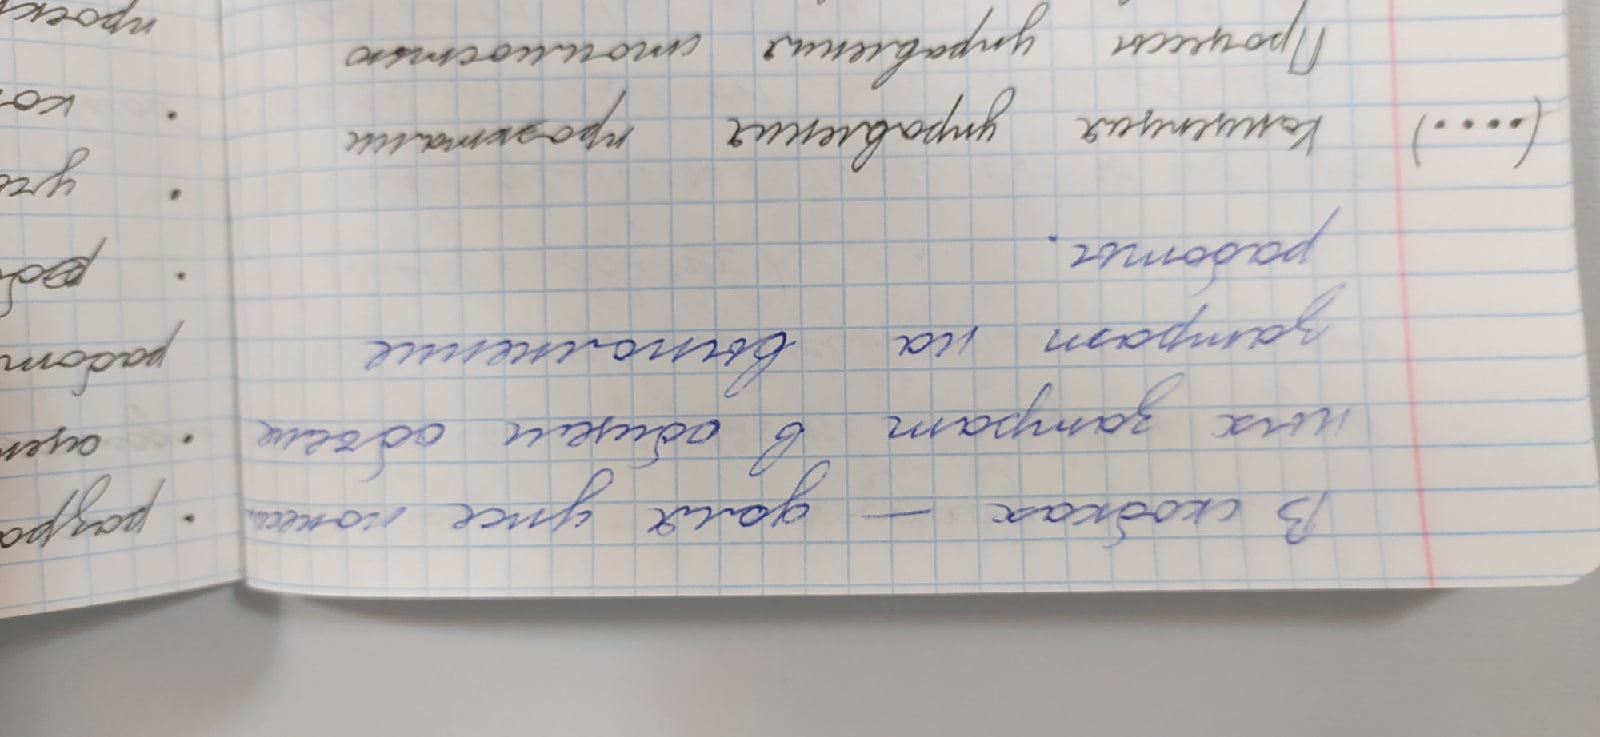 В скобках — доля уже понесен
ных затрат в общем объеме
затрат на выполнение
работы.
(....) Концепция управления проэктами
Процессы управления стоимостью
• разра
• оцен
работ
•
• уче
• ко
проек